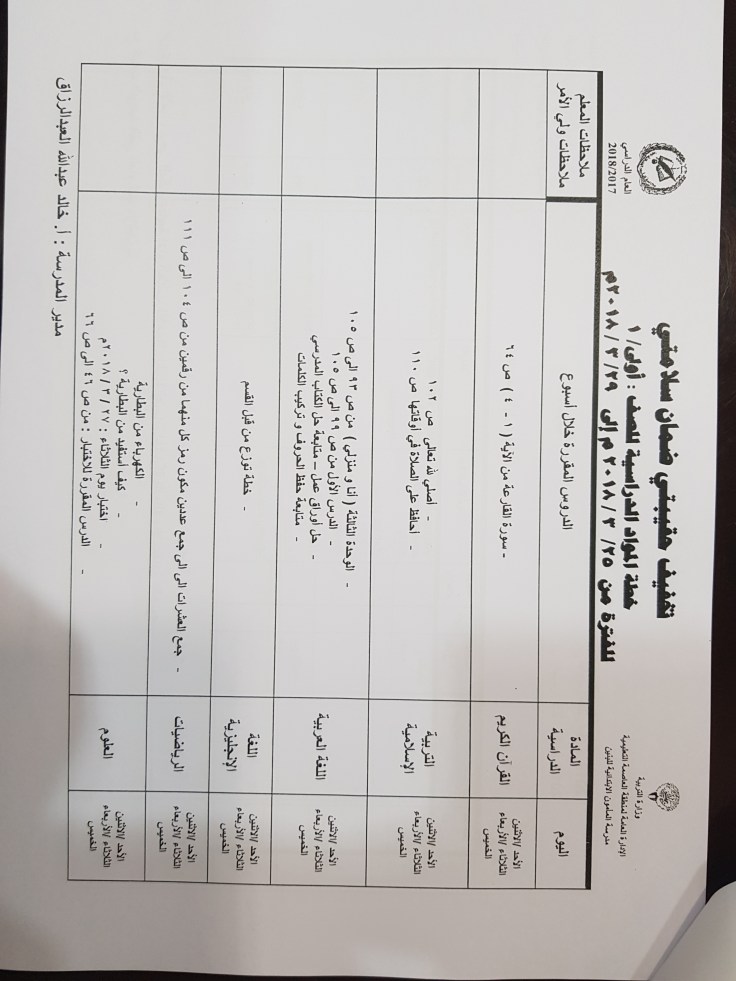 وزارة التربية
الإدارة العامة لمنطقة العاصمة التعليمية
مدرسة المأمون الابتدائية للبنين
تخفيف حقيبتي ضمان سلامتي
خطة المواد الدراسية للصف : أولى/ ١
للفترة من ٢٥/ ٣ / ٢٠١٨ م إلى ٢٩/ ٣ / ٢٠١٨م
العام الدراسي
2018/2017
اليوم
المادة الدراسية
الدروس المقررة خلال أسبوع
ملاحظات المعلم
ملاحظات ولي الأمر
الأحد /الاثنين
الثلاثاء /الأربعاء
الخميس
القرآن الكريم
- سورة القارعة من الآية ( ١ - ٤ ) ص ٦٤
الأحد /الاثنين
الثلاثاء /الأربعاء
الخميس
التربية
الإسلامية
- أصلي لله تعالى ص ١٠٢
- أحافظ على الصلاة في أوقاتها ص ١١٠
الأحد /الاثنين
الثلاثاء /الأربعاء
الخميس
اللغة العربية
- الوحدة الثالثة ( أنا و منزلي ) من ص ٩٣ الى ص ١٠٥
- الدرس الأول من ص ٩٩ الى ص ١٠٥
- حل أوراق عمل – متابعة حل الكتاب المدرسي
- متابعة حفظ الحروف و تركيب الكلمات
الأحد /الاثنين
الثلاثاء /الأربعاء
الخميس
اللغة
الإنجليزية
- خطة توزع من قبل القسم
الأحد /الاثنين
الثلاثاء /الأربعاء
الخميس
الرياضيات
- جمع العشرات الى الى جمع عددين مكون رمز كل منهما من رقمين من ص ١٠٤ الى ص ١١١
الأحد /الاثنين
الثلاثاء /الأربعاء
الخميس
العلوم
- الكهرباء من البطارية
- كيف أستفيد من البطارية ؟
- اختبار يوم الثلاثاء : ٢٧ / ٣ / ٢٠١٨م
- الدرس المقررة للاختبار : من ص ٤٦ الى ص ٦٦
مدير المدرسة : أ. خالد عبدالله العبدالرزاق